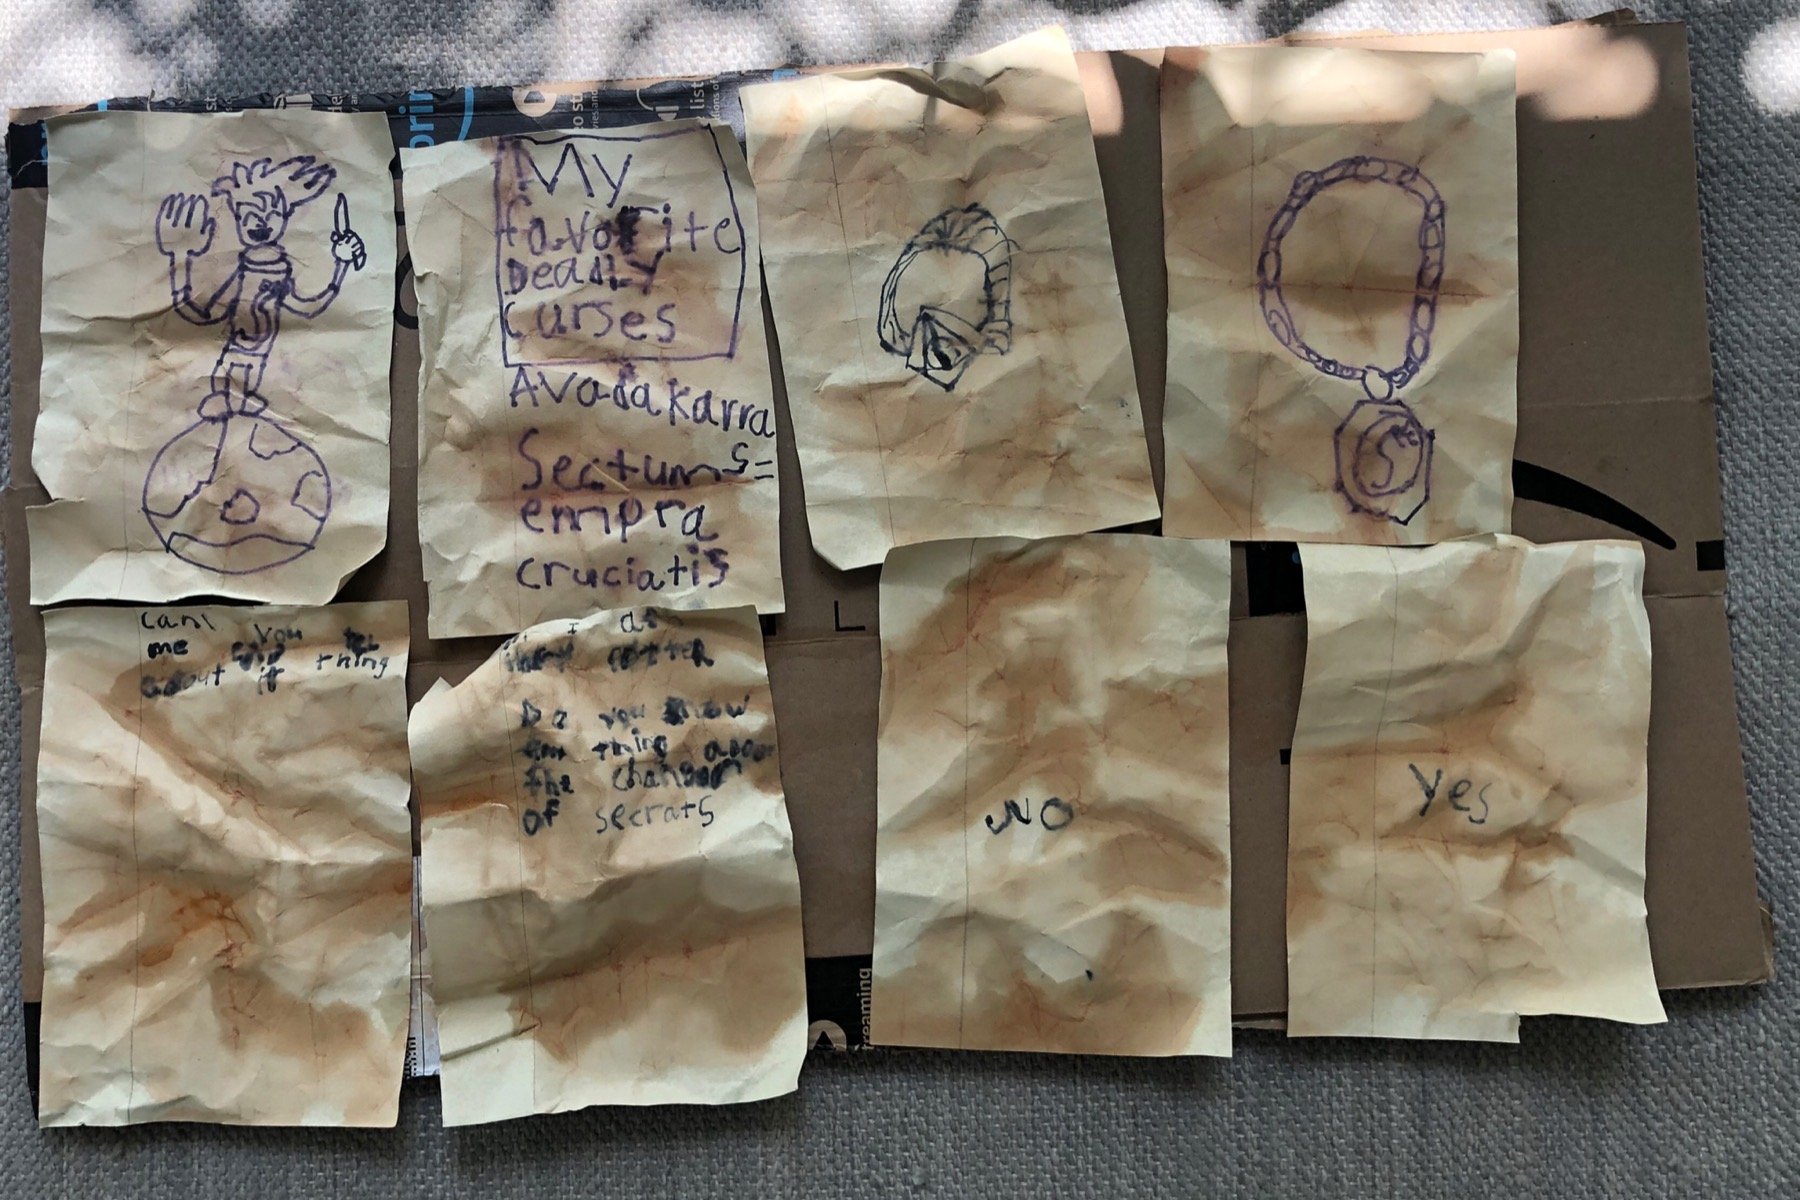 My
favorite
DeadLY
curses
Avada Karra
Sectums=
empra
cruciatis
S
Can
you tel
me
about it thing
I am
Harry Potter
Do you know
thing about
the chamber
of secrats
NO
Yes
L
streaming
list